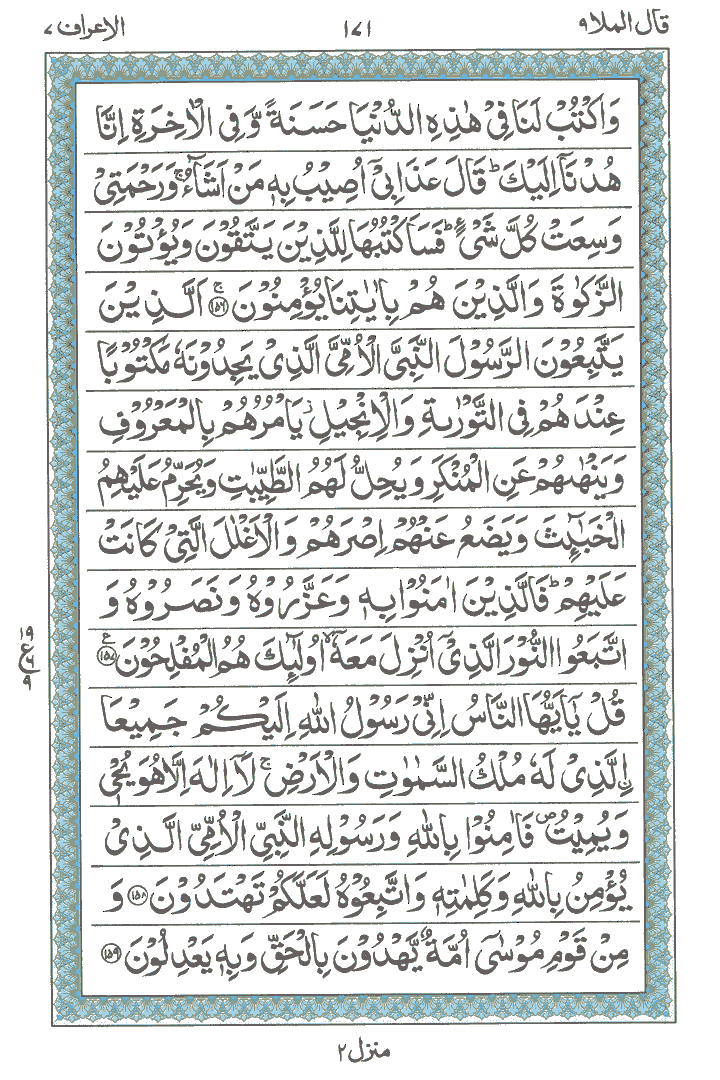 قال الملا ٩
١٧١
الاعراف ٧
وَاكْتُبْ لَنَا فِیْ هٰذِهِ الدُّنْیَا حَسَنَةً وَّ فِی الْاٰخِرَةِ اِنَّا
هُدْنَاۤ اِلَیْكَ ؕ قَالَ عَذَابِیْۤ اُصِیْبُ بِهٖ مَنْ اَشَآءُ ۚ وَ رَحْمَتِیْ
وَسِعَتْ كُلَّ شَیْءٍ ؕ فَسَاَكْتُبُهَا لِلَّذِیْنَ یَتَّقُوْنَ وَ یُؤْتُوْنَ
الزَّكٰوةَ وَ الَّذِیْنَ هُمْ بِاٰیٰتِنَا یُؤْمِنُوْنَ ۚ ﴿۱۵۶﴾ اَلَّذِیْنَ
یَتَّبِعُوْنَ الرَّسُوْلَ النَّبِیَّ الْاُمِّیَّ الَّذِیْ یَجِدُوْنَهٗ مَكْتُوْبًا
عِنْدَهُمْ فِی التَّوْرٰىةِ وَ الْاِنْجِیْلِ ؗ یَاْمُرُهُمْ بِالْمَعْرُوْفِ
وَ یَنْهٰىهُمْ عَنِ الْمُنْكَرِ وَ یُحِلُّ لَهُمُ الطَّیِّبٰتِ وَ یُحَرِّمُ عَلَیْهِمُ
الْخَبٰٓىِٕثَ وَ یَضَعُ عَنْهُمْ اِصْرَهُمْ وَ الْاَغْلٰلَ الَّتِیْ كَانَتْ
عَلَیْهِمْ ؕ فَالَّذِیْنَ اٰمَنُوْا بِهٖ وَ عَزَّرُوْهُ وَ نَصَرُوْهُ وَ
اتَّبَعُوا النُّوْرَ الَّذِیْۤ اُنْزِلَ مَعَهٗۤ ۙ اُولٰٓىِٕكَ هُمُ الْمُفْلِحُوْنَ ﴿۱۵۷﴾ ع
١٩
ع
٦
٩
قُلْ یٰۤاَیُّهَا النَّاسُ اِنِّیْ رَسُوْلُ اللّٰهِ اِلَیْكُمْ جَمِیْعَا
ﹰالَّذِیْ لَهٗ مُلْكُ السَّمٰوٰتِ وَ الْاَرْضِ ۚ لَاۤ اِلٰهَ اِلَّا هُوَ یُحْیٖ
وَ یُمِیْتُ ۪ فَاٰمِنُوْا بِاللّٰهِ وَ رَسُوْلِهِ النَّبِیِّ الْاُمِّیِّ الَّذِیْ
یُؤْمِنُ بِاللّٰهِ وَ كَلِمٰتِهٖ وَ اتَّبِعُوْهُ لَعَلَّكُمْ تَهْتَدُوْنَ ﴿۱۵۸﴾ وَ
مِنْ قَوْمِ مُوْسٰۤی اُمَّةٌ یَّهْدُوْنَ بِالْحَقِّ وَ بِهٖ یَعْدِلُوْنَ ﴿۱۵۹﴾
منزل ٢